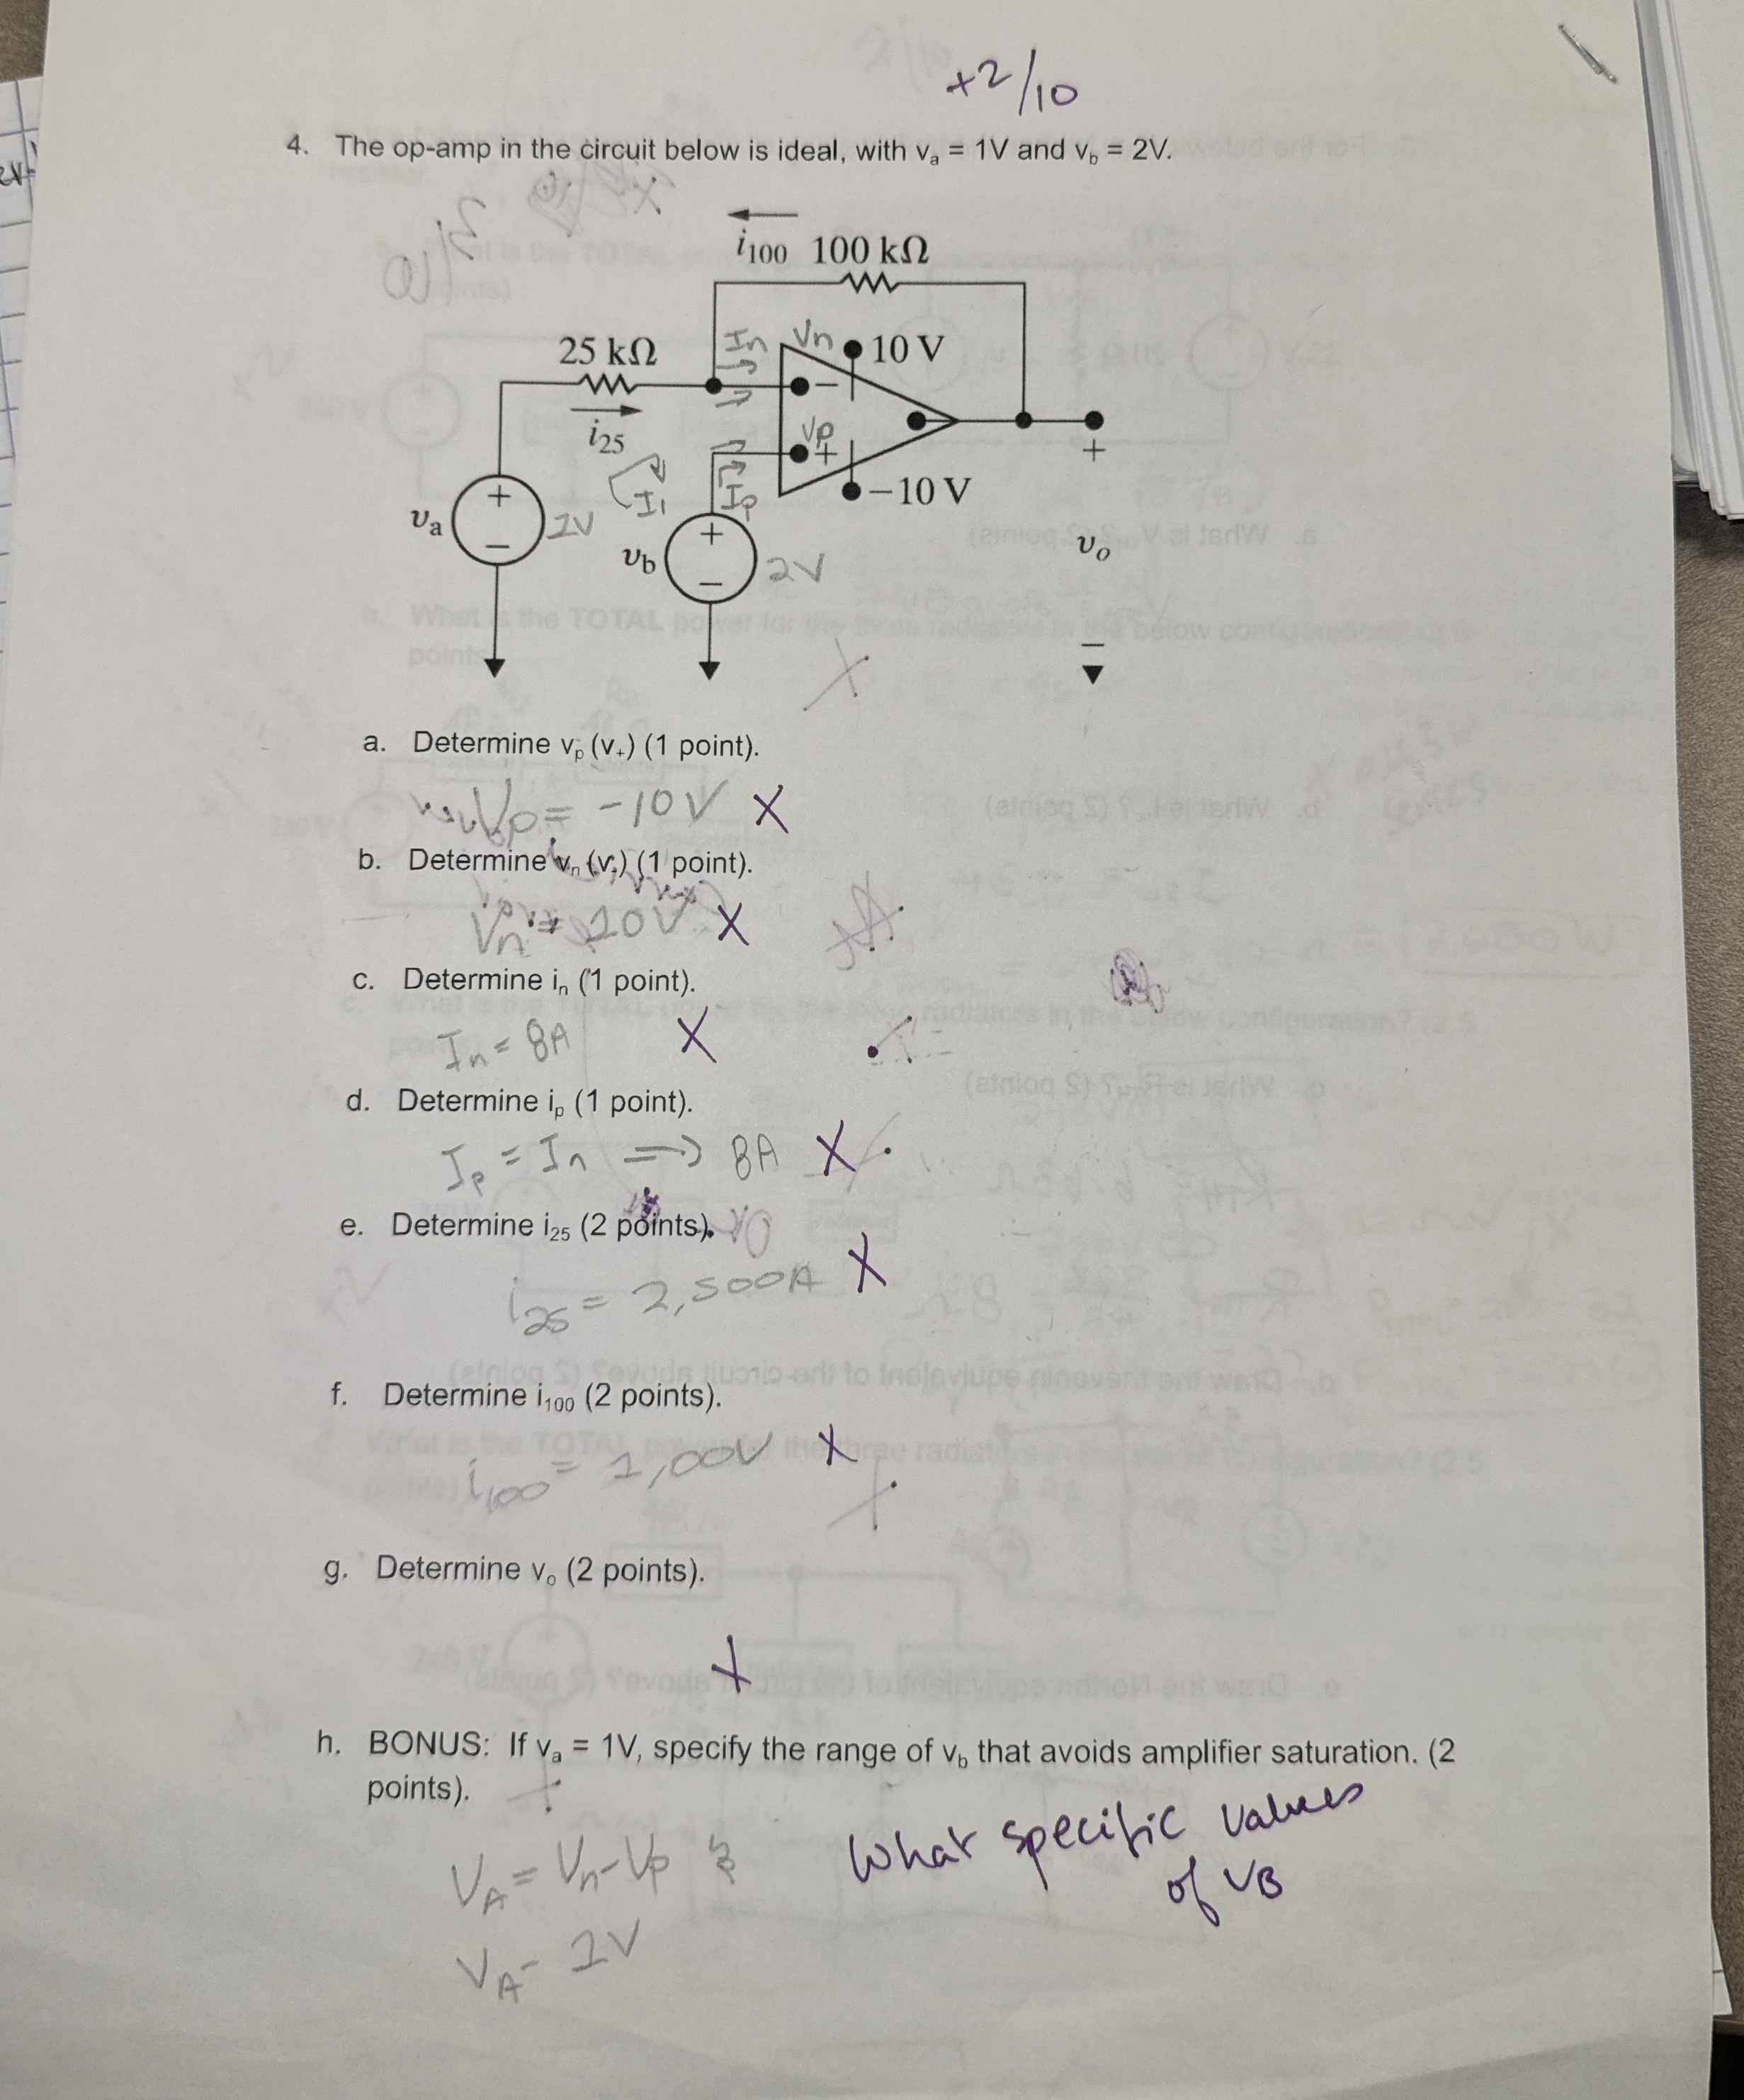 +2/10
4. The op-amp in the circuit below is ideal, with va = 1V and vb = 2V.
i100 100 kΩ
25 kΩ
In
Vn
10 V
−
i25
Vp
+
+
I1
Ip
−10 V
+
va
1V
−
+
vb
2V
−
vo
−
a. Determine vp (v+) (1 point).
Vp = -10V X
b. Determine vn (v-) (1 point).
Vn = 10V X
c. Determine in (1 point).
In = 8A X
d. Determine ip (1 point).
Ip = In => 8A X
e. Determine i25 (2 points).
i25 = 2,500A X
f. Determine i100 (2 points).
i100 = 1,00V X
g. Determine vo (2 points).
X
h. BONUS: If va = 1V, specify the range of vb that avoids amplifier saturation. (2
points).
VA = Vn - Vp
What specific values
of VB
VA - 1V